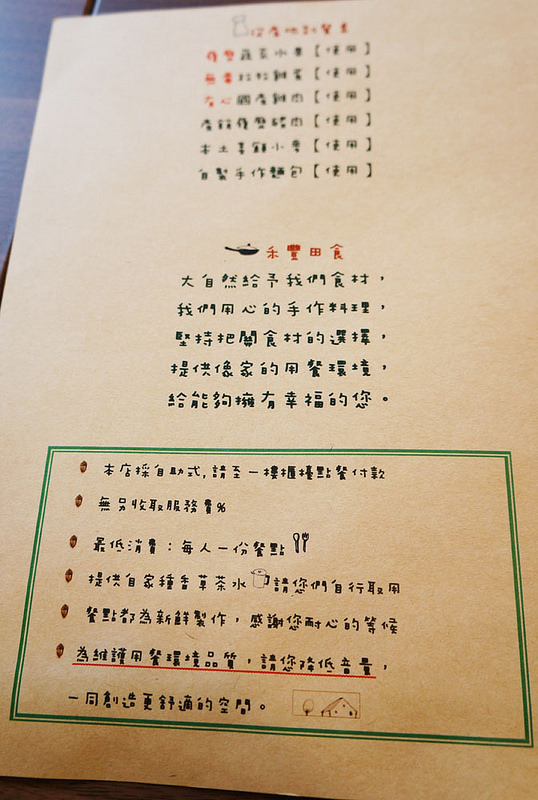 從產地到餐桌
有機蔬菜水果【使用】
無毒放牧雞蛋【使用】
有心國產雞肉【使用】
產銷履歷豬肉【使用】
本土喜願小麥【使用】
自製手作麵包【使用】
禾豐田食
大自然給予我們食材，
我們用心的手作料理，
堅持把關食材的選擇，
提供像家的用餐環境，
給能夠擁有幸福的您。
本店採自助式，請至一樓櫃檯點餐付款
無另收取服務費%
最低消費：每人一份餐點
提供自家種香草茶水 請您們自行取用
餐點都為新鮮製作，感謝您耐心的等候
為維護用餐環境品質，請您降低音量，
一同創造更舒適的空間。